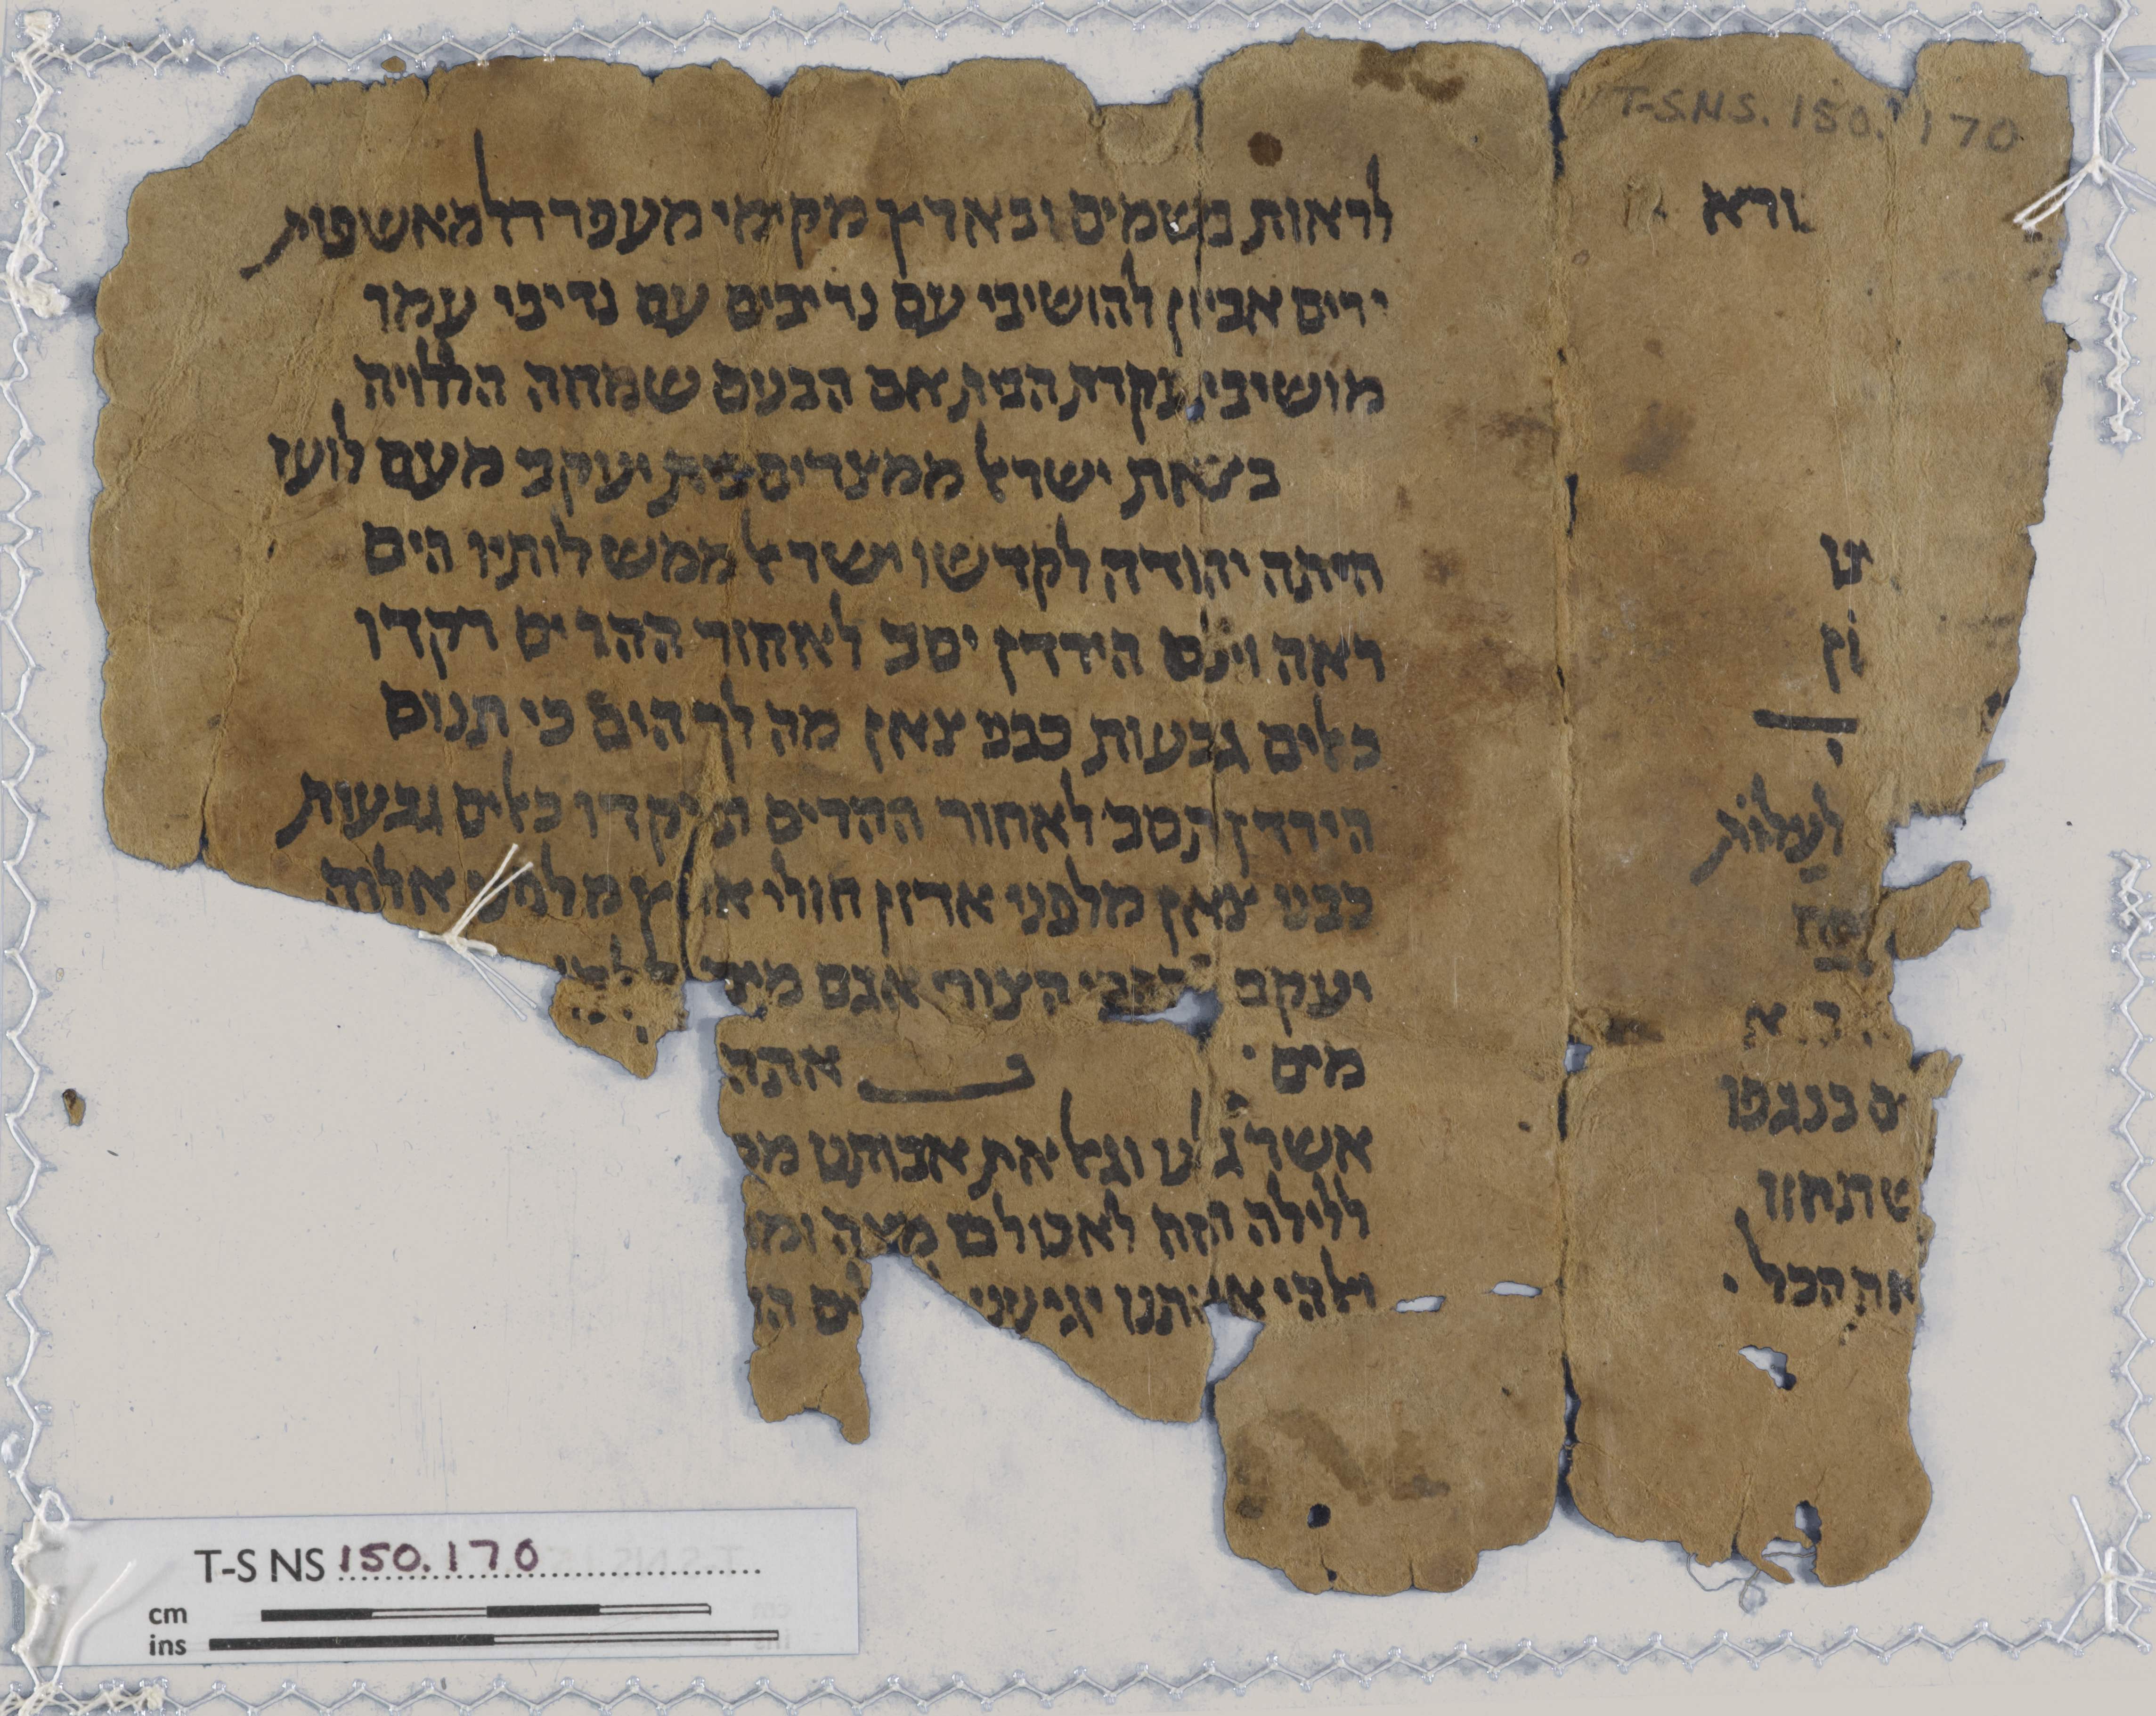 T-S.N.S. 150.170
ורא
ון
לעלות
ם כנגפו
שתחוו
את הכל
לראות בשמים ובארץ מקימי מעפר דל מאשפות
ירים אביון להושיבי עם נדיבים עם נדיבי עמו
מושיבי עקרת הבית אם הבנים שמחה הללויה
בצאת ישראל ממצרים בית יעקב מעם לועז
היתה יהודה לקדשו ישראל ממשלותיו הים
ראה וינס הירדן יסב לאחור ההרים רקדו
כאלים גבעות כבני צאן מה לך הים כי תנוס
הירדן תסב לאחור ההרים תירקדו כאלים גבעות
כבני צאן מלפני אדון חולי ארץ מלפני אלוה
יעקב ההפכי הצור אגם מים
מים אתה
אשר גאלנו וגאל את אבותינו
ללילה הזה לאכול בו מצה
אלהי אבותנו יגיענו
T-S NS 150.170
cm
ins